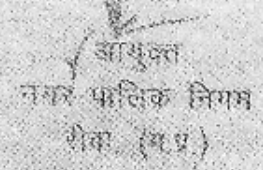 आयुक्त
नगर पालिक निगम
रीवा (म.प्र.)